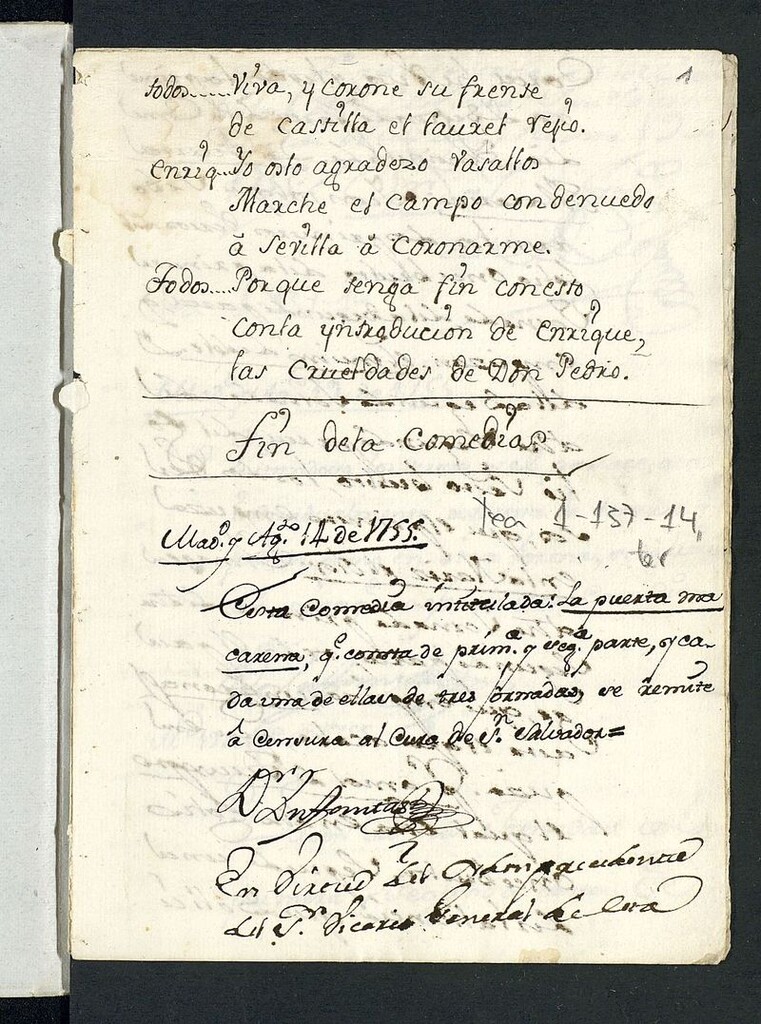 1
todos.....Viva, y corone su frente
de Castilla el laurel rejio.
Enriq..Yo esto agradezo Vasallos
Marche el campo con denuedo
â Sevilla â Coronarme.
Todos....Porque tenga fin con esto
con la yntroducion de Enrique,
las Crueldades de Don Pedro.
fin dela Comedia
Tea 1-137-14,
Mad.d y Ag.to 14 de 1755.
Esta Comedia intitulada: La puerta ma
carena, q.e consta de prim.a y seg.a parte, y ca-
da una de ellas de tres jornadas, se remite
â censura al Cura de S.n Salvador=
D.r D.n
En Virtud del Orden precedente
del S.r Vicario General de esta